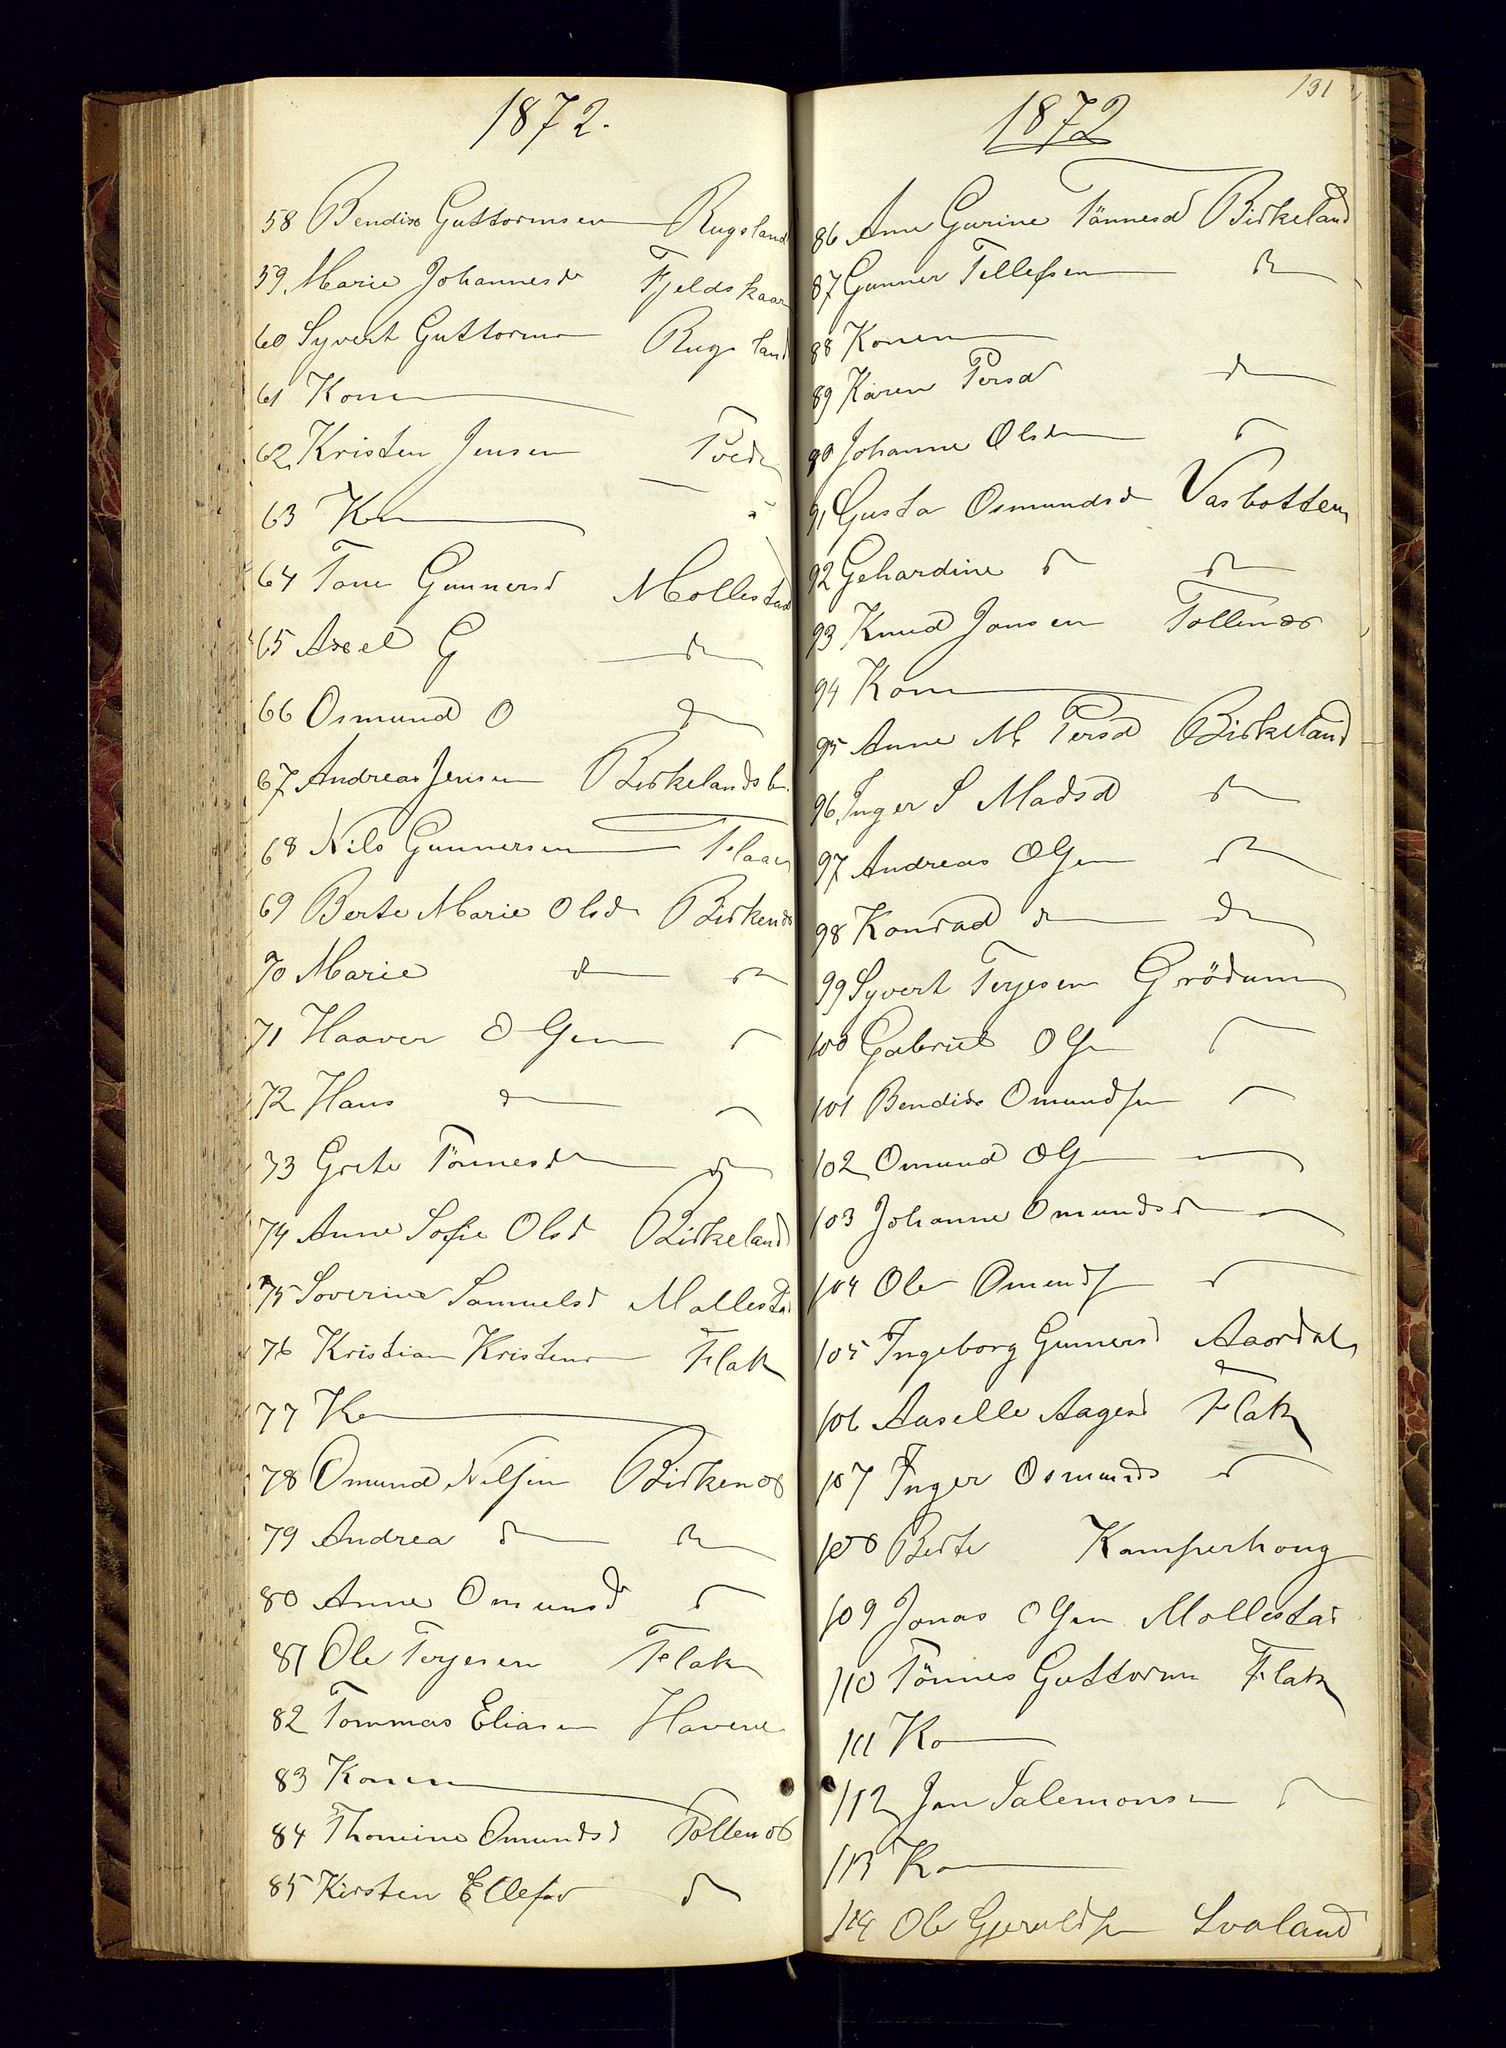 1872.
58 Bendix Guttormsen Rugsland
59 Marie Johannesd Fjeldskaar
60 Syvert Guttorms Rugsland
61 Konen
62 Kristen Jensen Tvede
63 Ko
64 Tone Gunnersd Mollestad
65 Axel G do
66 Osmund O do
67 Andreas Jensen Birkelandsb.
68 Nils Gunnersen Flaa
69 Berte Marie Olsd Birkenes
70 Marie do do
71 Haaver Olsen do
72 Hans do do
73 Grete Tönnesd do
74 Anne Sofie Olsd Birkeland
75 Soverine Samuelsd Mollestad
76 Kristian Kristens Flak
77 Ko
78 Omund Nilsen Birkenes
79 Andrea do do
80 Anne Omunds do
81 Ole Terjesen Flak
82 Tommas Eliasen Havene
83 Konen
84 Thomine Omundsd Tollenes
85 Kirsten Ellefsd do
131
1872
86 Ane Gurine Tönnesd Birkeland
87 Gunner Tellefsen do
88 Konen
89 Karen Persd do
90 Johanne Olsd do
91 Gusta Osmundsd Vasbotten
92 Gehardine do do
93 Knud Jonsen Tollenes
94 Kone
95 Anne M Persd Birkeland
96 Inger S Madsd do
97 Andreas Olsen do
98 Konrad do do
99 Syvert Terjesen Grödum
100 Gabriel Olsen do
101 Bendix Omundsen do
102 Omund Olsen
103 Johanne Omundsd
104 Ole Omunds do
105 Ingeborg Gunnersd Aardal
106 Aaselle Aagesd Flak
107 Inger Osmunds do
108 Berte Kamperhoug
109 Jonas Olsen Mollestad
110 Tönnes Guttorm Flak
111 Ko
112 Jon Salemonsen do
113 Ko
114 Ole Gjeruldsen Svaland